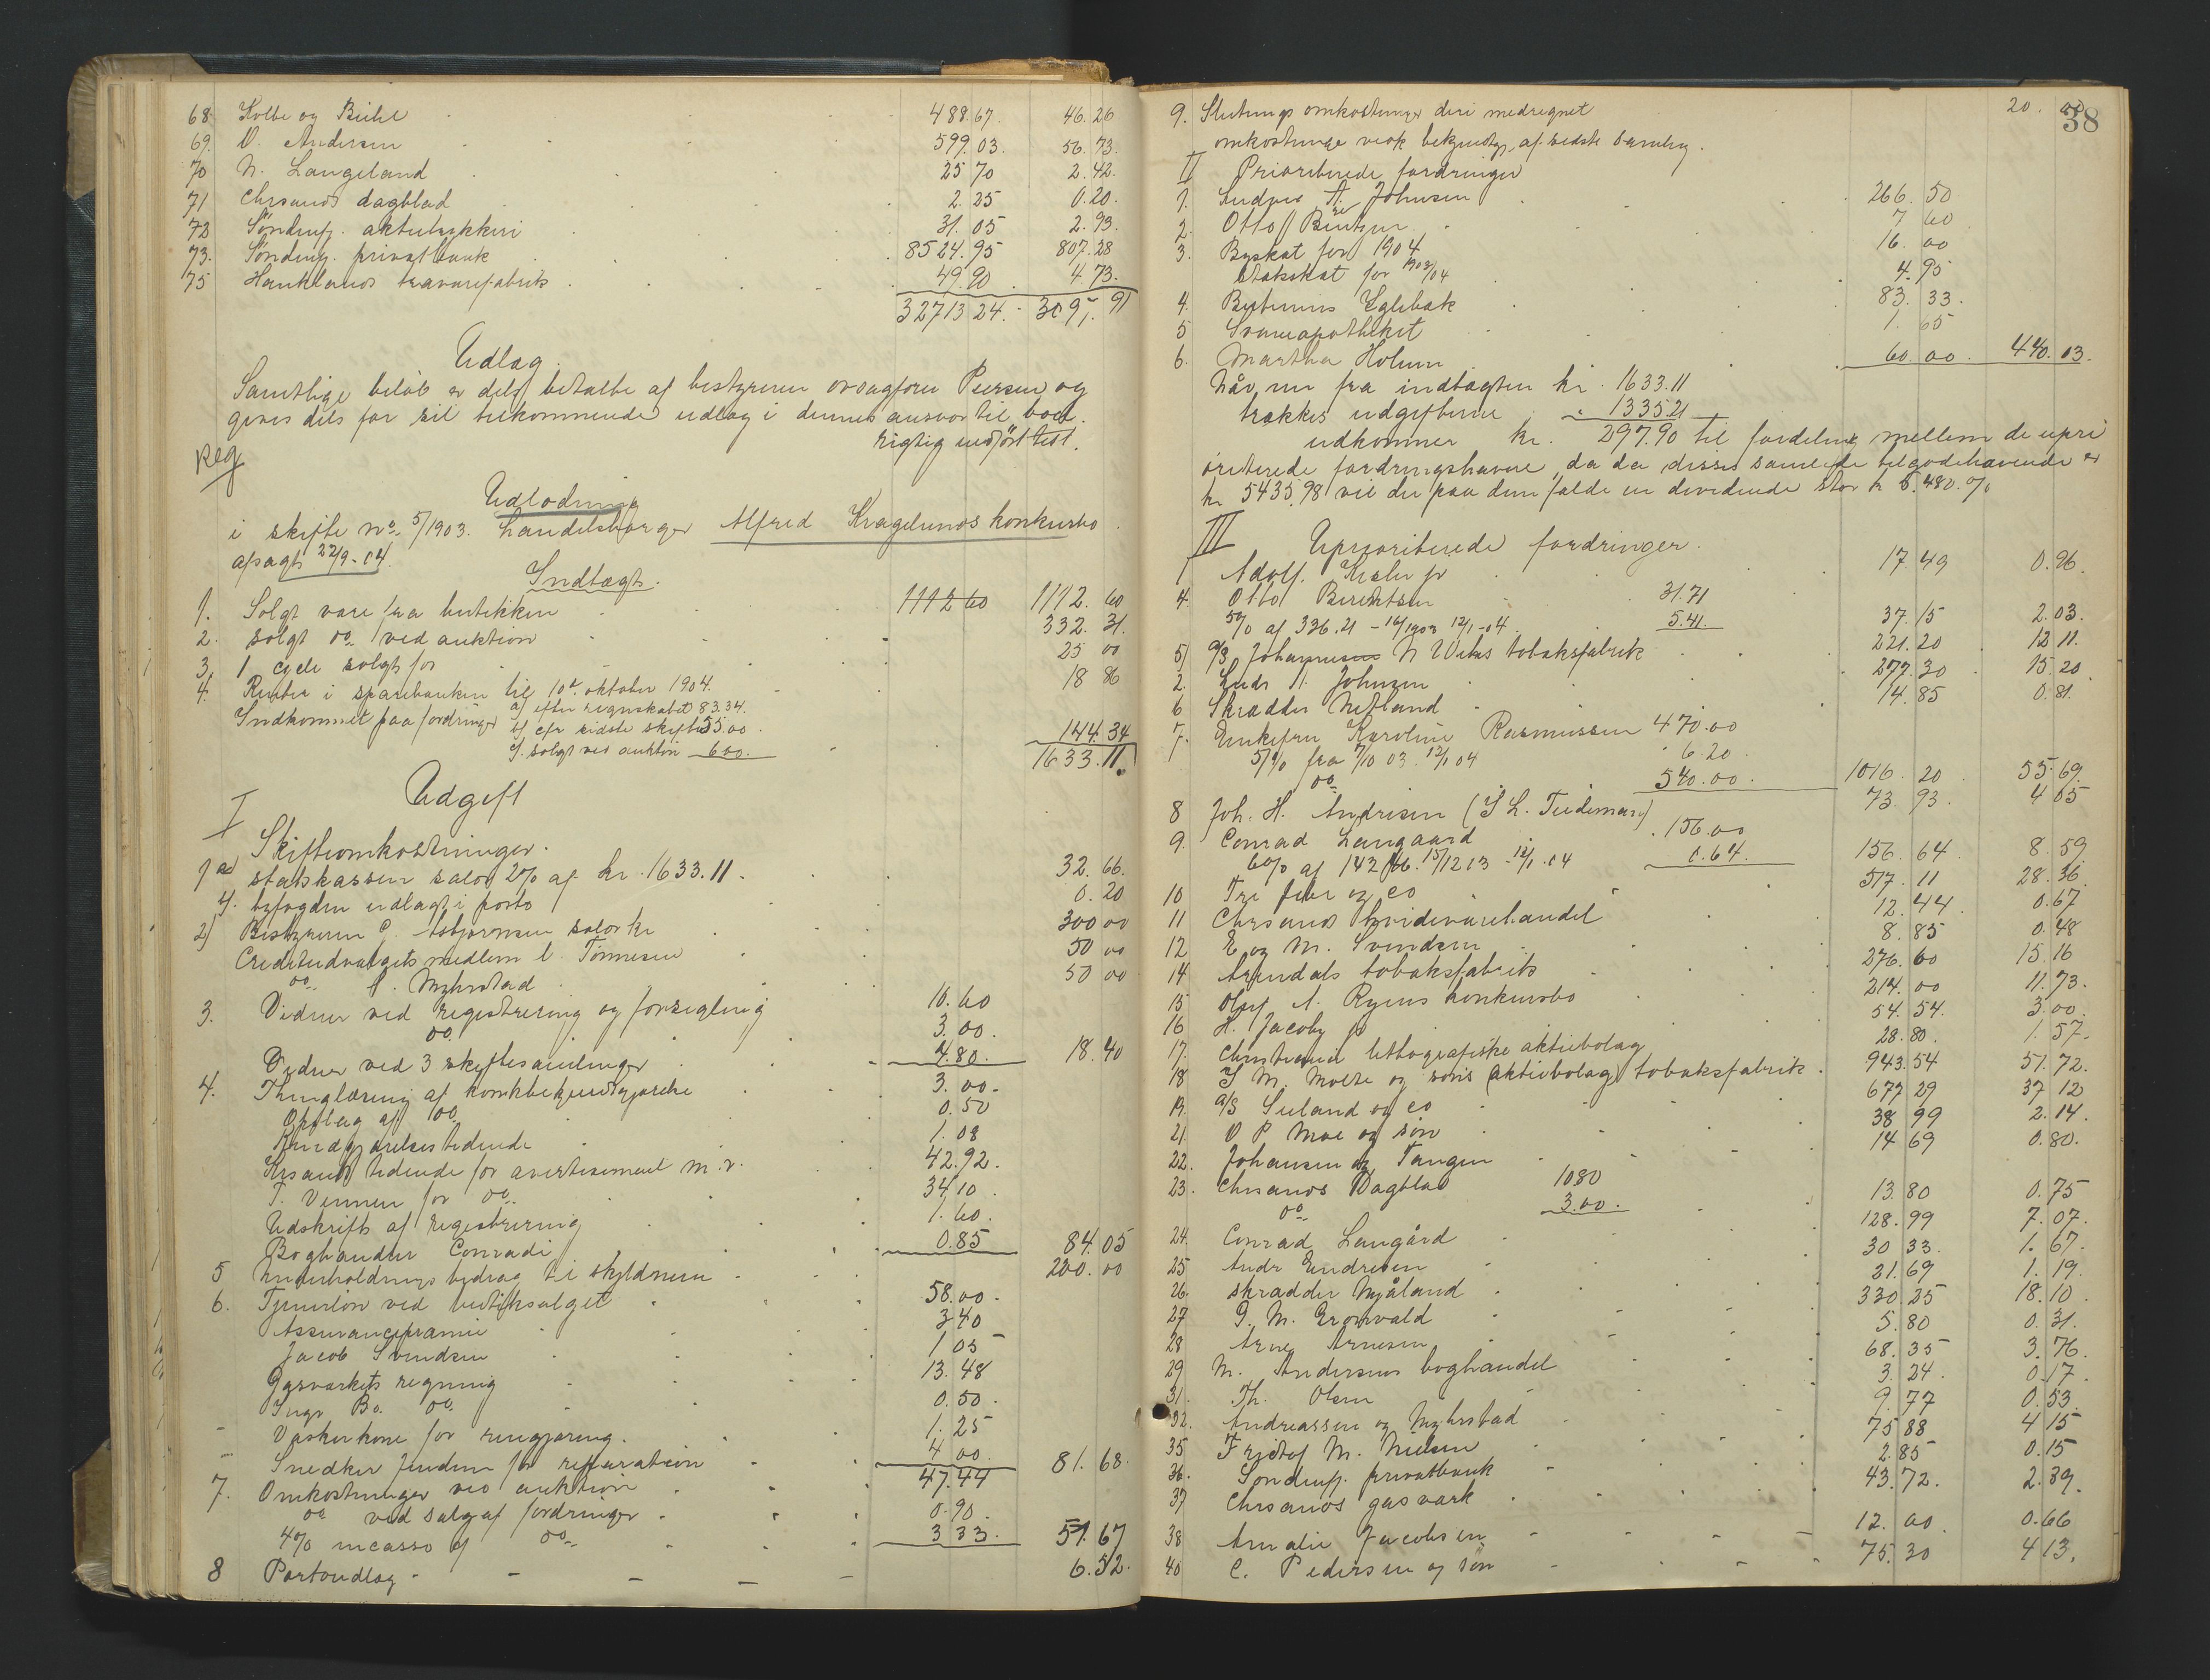 68. Kolbe og Buhl 488.67. 46.26
69. O. Andersen 599.03. 56.73.
70 N. Langeland 25 70 2.42.
71 Chrsands dagblad 2.25 0.20.
72 Söndenfj. aktietrykkeri 31.05 2.93.
73. Söndenfj. privatbank 8524.95 807.28
75 Hauklands trævarefabrik 49.90 4 73.
32713 24. 3095.91
Udlæg.
Samtlige beløb er dels betalte af bestyreren ovsagfører Piersen og
gives dels for sit tilkommende udlæg i dennes ansvar til boet.
Rigtig udført test.
Reg
Udlodning
i skifte no. 5/1903. handelsborger Alfred Kragelunds konkursbo
afsagt 22/9-04.
Indtægt.
1. Solgt vare fra butikken 1112 60 1112.60
2. solgt do. ved auktion 332.31.
3, 1 cycle solgt for 25 00
4. Renter i sparebanken til 10de oktober 1904. 18 86
Indkommet paa fordringer a/ efter regnskabet 83.34.
b/ efr sidste skifte 55.00.
c/. solgt ved auktion 6 00. 144.34
1633.11.
Udgift
I
Skifteomkostninger.
1 a) statskassen salær 2% af kr. 1633.11. 32.66.
b. byfogden udlagt i porto 0.20
2) Bestyreren C. Asbjørnsen salær kr 300 00
Creditudvalgets medlem C. Tönnesen 50 00
do. Myhrstad 50 00
3. Vidner ved registrering og forsegling 10.60
do. 3.00.
Vidner ved 3 skiftesamlinger 4.80. 18.40
4. Thinglæsning af konkbekjendtgjørelse 3.00.
Opslag af do. 0.50
Kundgjørelsestidende 1.08
Krsands tidende for avertissement m.v. 42.92.
F. Vennen for do. 34 10
Udskrift af registrering 1.60.
Boghandler Conradi 0.85 84.05
5 Underholdnings bidrag til skyldneren 200.00
6. Tjenerlön ved butiksalget 58.00.
Assurancepræmie 3 40
Jacob Svendsen 1 05
Gasværkets regning 13.48
Ingv Bo. do. 0.50.
Vaskerkone for rengjøring. 1.25
Snedker Jensen for reparation 4 00. 81.68.
7. Omkostninger ved auktion 47.44
do ved salg af fordringer 0.90.
4% incasso af do. 3 33. 51.67
8 Portoudlæg 6.52.
38
9. Slutnings omkostninger deri medregnet 20.00
omkostninge vedk bekjendtgj. af sidste samling.
II Prioriterede fordringer
1. Ludvig A. Johnsen 266.50
2. Otto Bentzen 7 60
3. Byskat for 1904 16.00
Statsskat for 1903/04 4.95
4. Bestyreren Eglebæk 83.33.
5 Svaneapotheket 1.65
6. Martha Holum 60.00. 440.03.
Når, nu fra indtægten kr. 1633.11
trækkes udgifterne 1335.21
udkommer kr. 297.90 til fordeling mellem de upri
oriterede fordringshavere, da der disses samlede tilgodehavende er
kr 5435.98 vil der paa dem falde en dividende stor kr 5.480.%
III Uprioriterede fordringer.
1 Adolf. Kisler jr 17.49 0.96.
4. Otto Berentsen 31.71
5% af 336.21 - 16/9 1903 12/1-04. 5.41. 37.15 2.03.
5/ A/S Johannesen N Wilhs tobaksfabrik 221.20 12 11.
2. Ludv A. Johnsen 277.30 15.20
6 Skrædder Netland 14.85 0.81.
7. Enkefru Karoline Rasmussen 470.00
5% fra 7/10 03. 12/1 04 6.20
do. 540.00. 1016.20 55.69.
8 Joh. H. Andresen (J L. Tiedemann) 73.93. 4 05
9. Conrad Langaard 156.00
6% af 142.66. 15/12 03 - 12/1.04 0.64. 156.64 8.59
10 Tre feler og co 517.11 28.36.
11 Chrsands hvidevarehandel 12.44. 0.67
12 E og M. Svendsen 8.85 0.48
14 Arendals tobaksfabrik 276.60 15.16
15 Oluf A. Ryens konkursbo 214.00 11.73.
16 H. Jacoby jr 54.54. 3.00.
17. Christiania lithografiske aktiebolag 28.80. 1.57.
18 I M. Molte og søns aktiebolag, tobaksfabrik 943.54 51.72.
19. A/S Siuland og co 677 29 37 12
21. O P. Moe og søn 38 99 2.14.
22. Johansen og Tangen 14 69 0.80.
23. Chrsands Dagblad 10 80
do. 3.00. 13.80 0.75
24. Conrad Langård 128.99 7.07.
25 Andr Endresen 30 33. 1.67.
26. Skrædder Mjåland 21.69 1.19.
27 G. M. Gronvald 330.25 18.10.
28 Arne Arnesen 5.80 0.31.
29 M. Andersens boghandel 68.35 3.76.
31. Th. Olsen 3.24. 0.17.
32. Andreassen og Myhrstad 9.77 0.53.
35 Fridtjof M. Nielsen 75 88 4 15
36. Söndenfj. privatbank 2.85 0.15
37 Chrsands gasværk 43.72. 2.39.
38 Amalie Jacobsen 12.00. 0.66
40 C. Pedersen og søn 75.30 4 13.